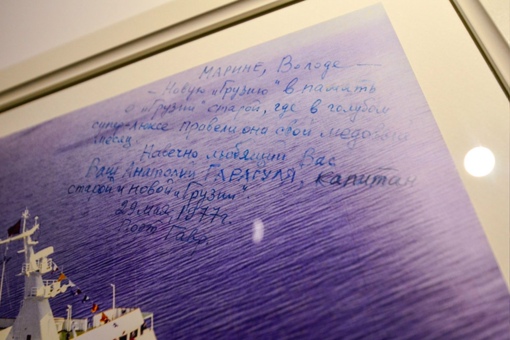 МАРИНЕ, Володе —
— Новую „Грузию" в память
о „Грузии" старой, где в голубом
супер-люксе провели они свой медовый
месяц.
Навечно любящий Вас
Ваш Анатолий ГАРАГУЛЯ, капитан
старой и новой „Грузии".
29 мая 1977г.
Порт Гавр.